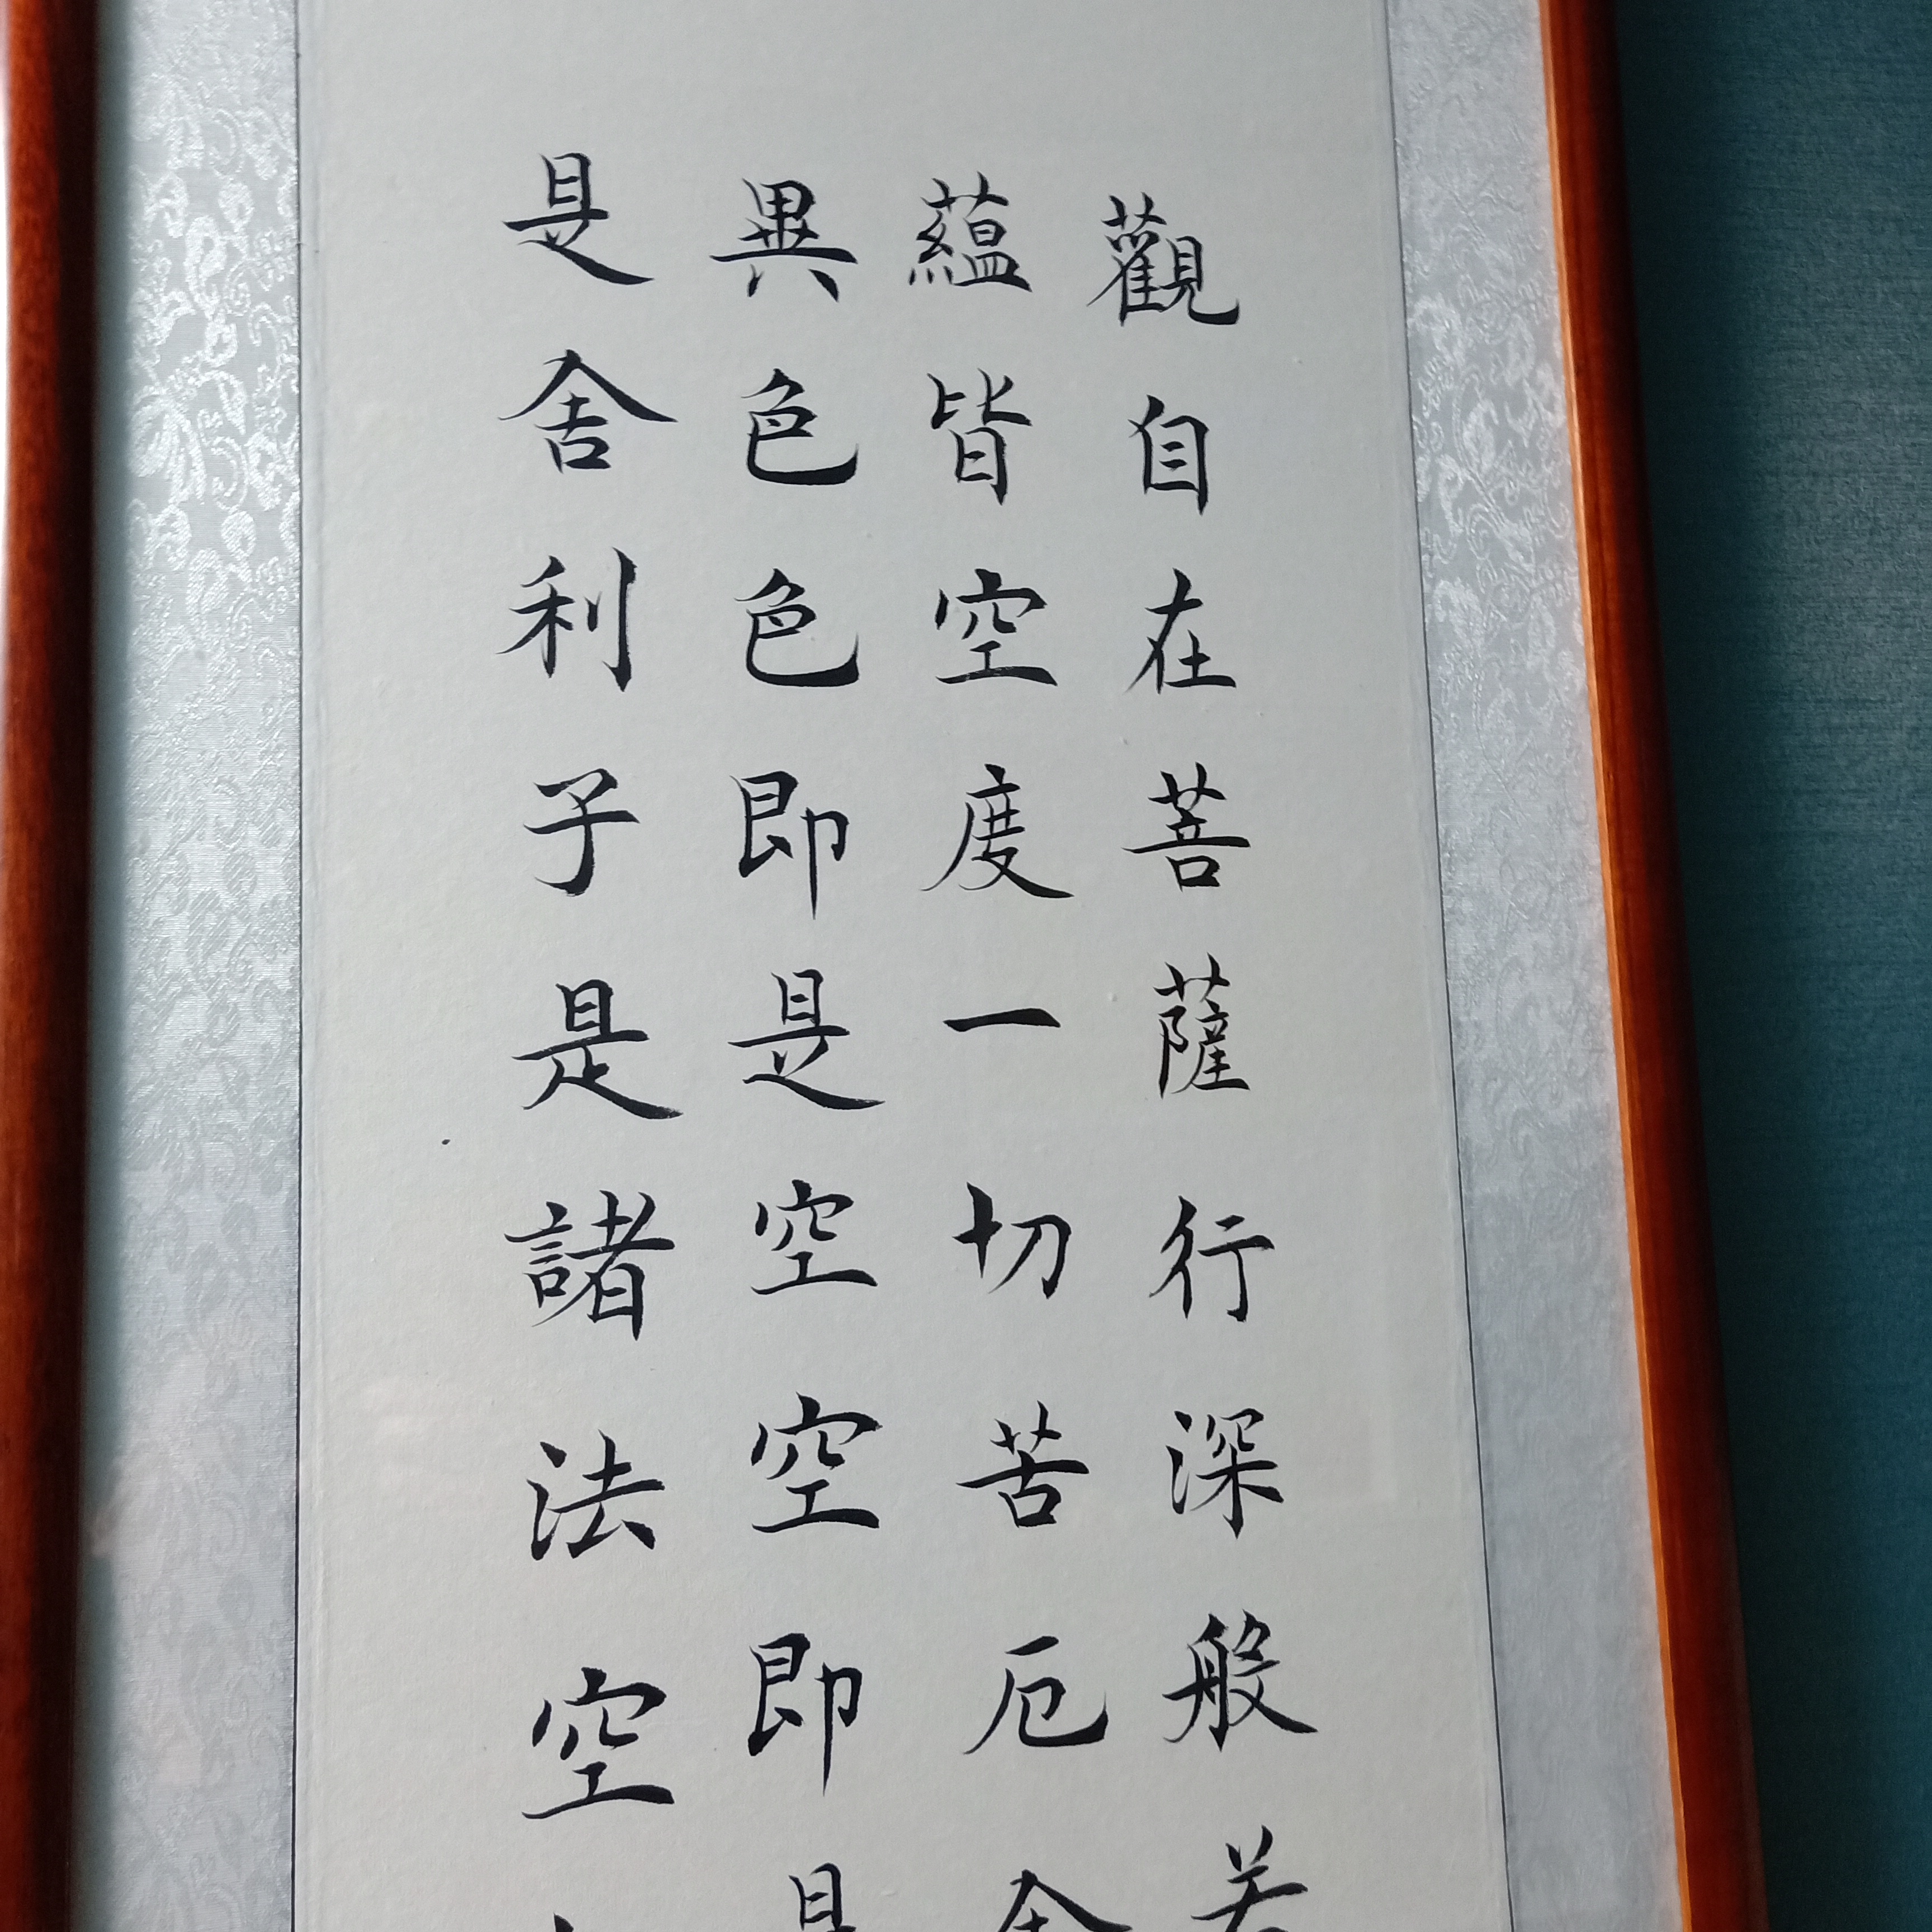 觀自在菩薩行深般若
蘊皆空度一切苦厄舍
異色色即是空空即是
是舍利子是諸法空